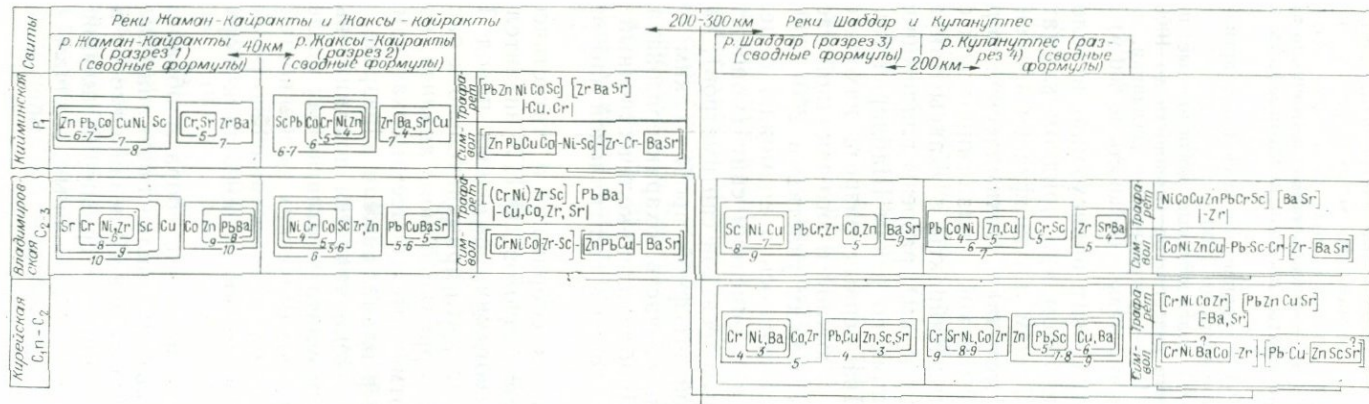 Свиты
Реки Жаман-Кайракты и Жаксы-Кайракты
200-300 км
Реки Шаддар и Куланутпес
р. Жаман-Кайракты (разрез 1) (сводные формулы)
40км
р. Жаксы-Кайракты (разрез 2) (сводные формулы)
р. Шаддар (разрез 3) (сводные формулы)
200 км
р. Куланутпес (разрез 4) (сводные формулы)
Кийминская P1
Zn Pb,Co Cu Ni Sc
6-7
7
8
Cr,Sr Zr Ba
5
7
Sc Pb Co Cr Ni,Zn
4
5
6
6-7
Zr Ba,Sr Cu
4
7
Трафарет
[Pb Zn Ni Co Sc] [Zr Ba Sr]
|-Cu, Cr|
Символ
[Zn Pb Cu Co-Ni-Sc]-[Zr-Cr-Ba Sr]
Владимировская C2-3
Sr Cr Ni,Zr Sc Cu
8
9
10
Co Zn Pb Ba
8
9
10
Ni,Cr Co Sc Zr,Zn
4
5
5-6
6
Pb Cu Ba Sr
5
5-6
Трафарет
[(Cr Ni) Zr Sc] [Pb Ba]
|-Cu, Co, Zr, Sr|
Символ
[Cr Ni Co-Zr-Sc]-[Zn Pb Cu-Ba Sr]
Sc Ni Cu Pb Cr,Zr Co,Zn
7
8
9
5
Ba Sr
9
Pb Co Ni Zn,Cu Cr,Sc
4
5
5
6
7
Zr Sr Ba
4
5
Трафарет
[Ni Co Cu Zn Pb Cr Sc] [Ba Sr]
|-Zr|
Символ
[Co Ni Zn Cu-Pb-Sc-Cr]-[Zr-Ba Sr]
Кирейская C1n-C2
Cr Ni,Ba Co,Zr
3
4
5
Pb,Cu Zn,Sc,Sr
3
4
Cr Sr Ni,Co Zr
8-9
9
Zn Pb,Sc Cu,Ba
5
6
7-8
9
Трафарет
[Cr Ni Co Zr] [Pb Zn Cu Sr]
[-Ba, Sr]
Символ
[Cr Ni Ba? Co-Zr]-[Pb-Cu-Zn Sc Sr?]